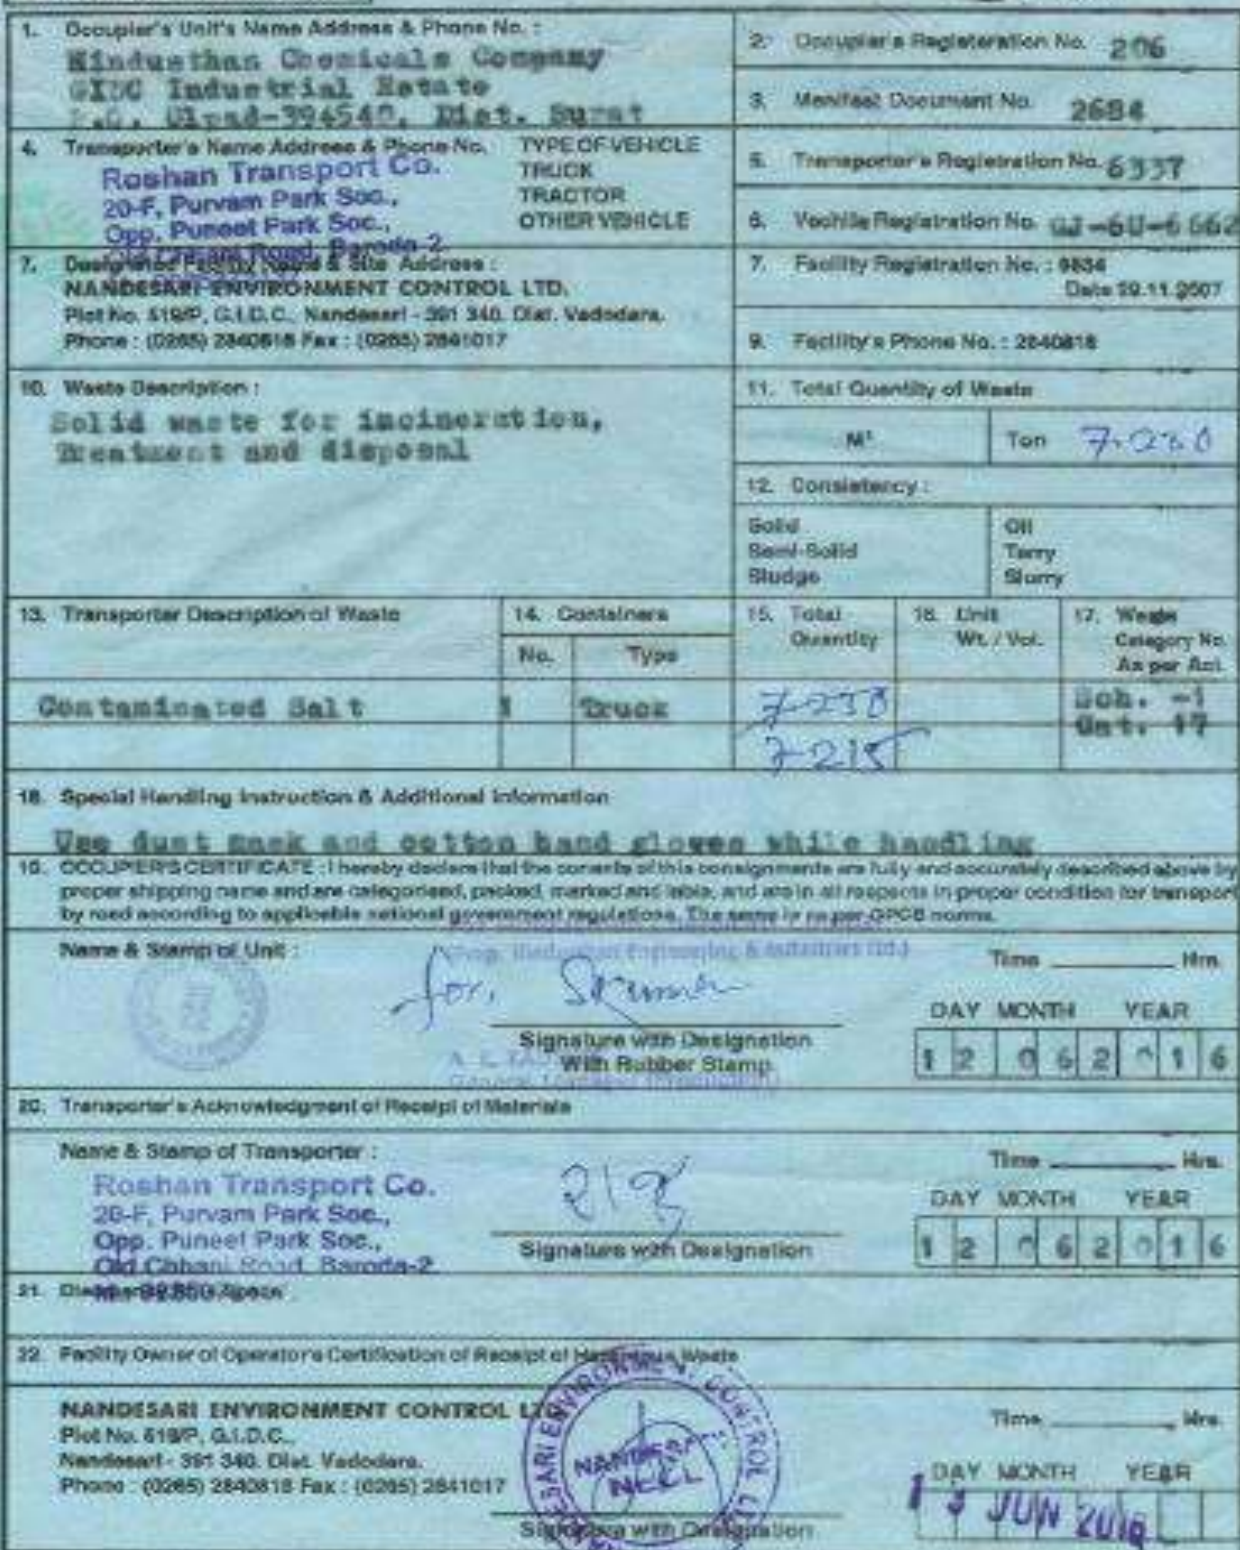 1. Occupier's Unit's Name Address & Phone No. :
Hindusthan Chemicals Company
GIDC Industrial Estate
P.O. Olpad-394540, Dist. Surat
2. Occupier's Registeration No. 206
3. Menifest Document No. 2684
4. Transporter's Name Address & Phone No.
Roshan Transport Co.
20-F, Purvam Park Soc.,
Opp. Puneet Park Soc.,
Old Chhani Road, Baroda-2.
TYPE OF VEHICLE
TRUCK
TRACTOR
OTHER VEHICLE
5. Transporter's Registration No. 6337
6. Vechile Registration No. GJ-6U-6662
7. Designated Facility Name & Site Address :
NANDESARI ENVIRONMENT CONTROL LTD.
Plot No. 519/P, G.I.D.C., Nandesari - 391 340. Dist. Vadodara.
Phone : (0265) 2840818 Fax : (0265) 2841017
7. Facility Registration No. :
Date 29.11.2007
9. Facility's Phone No. : 2840818
10. Waste Description :
Solid waste for incineration,
Treatment and disposal
11. Total Quantity of Waste
M³
Ton
12. Consistency :
Solid
Semi-Solid
Sludge
Oil
Tarry
Slurry
13. Transporter Description of Waste
14. Containers
No. Type
15. Total Quantity
16. Unit Wt. / Vol.
17. Waste Category No. As per Act.
Contaminated Salt 1 Truck 7-230 Sch. -1
7-215 Cat. 17
18. Special Handling Instruction & Additional Information
Use dust mask and cotton hand gloves while handling
19. OCCUPIER'S CERTIFICATE : I hereby declare that the contents of this consignments are fully and accurately described above by
proper shipping name and are categorised, packed, marked and lable, and are in all respects in proper condition for transport
by road according to applicable national government regulations. The same is as per GPCB norms.
Name & Stamp of Unit :
(Prop. Hindusthan Engineering & Industries Ltd.)
for,
Signature with Designation
With Rubber Stamp
Time Hrs.
DAY MONTH YEAR
12 06 2016
20. Transporter's Acknowledgment of Receipt of Materials
Name & Stamp of Transporter :
Roshan Transport Co.
20-F, Purvam Park Soc.,
Opp. Puneet Park Soc.,
Old Chhani Road, Baroda-2
Signature with Designation
Time Hrs.
DAY MONTH YEAR
12 06 2016
21.
22. Facility Owner of Operator's Certification of Receipt of Hazardous Waste
NANDESARI ENVIRONMENT CONTROL LTD.
Plot No. 519/P, G.I.D.C.,
Nandesari - 391 340. Dist. Vadodara.
Phone : (0265) 2840818 Fax : (0265) 2841017
NANDESARI
NECL
Signature with Designation
Time Hrs.
DAY MONTH YEAR
13 JUN 2016